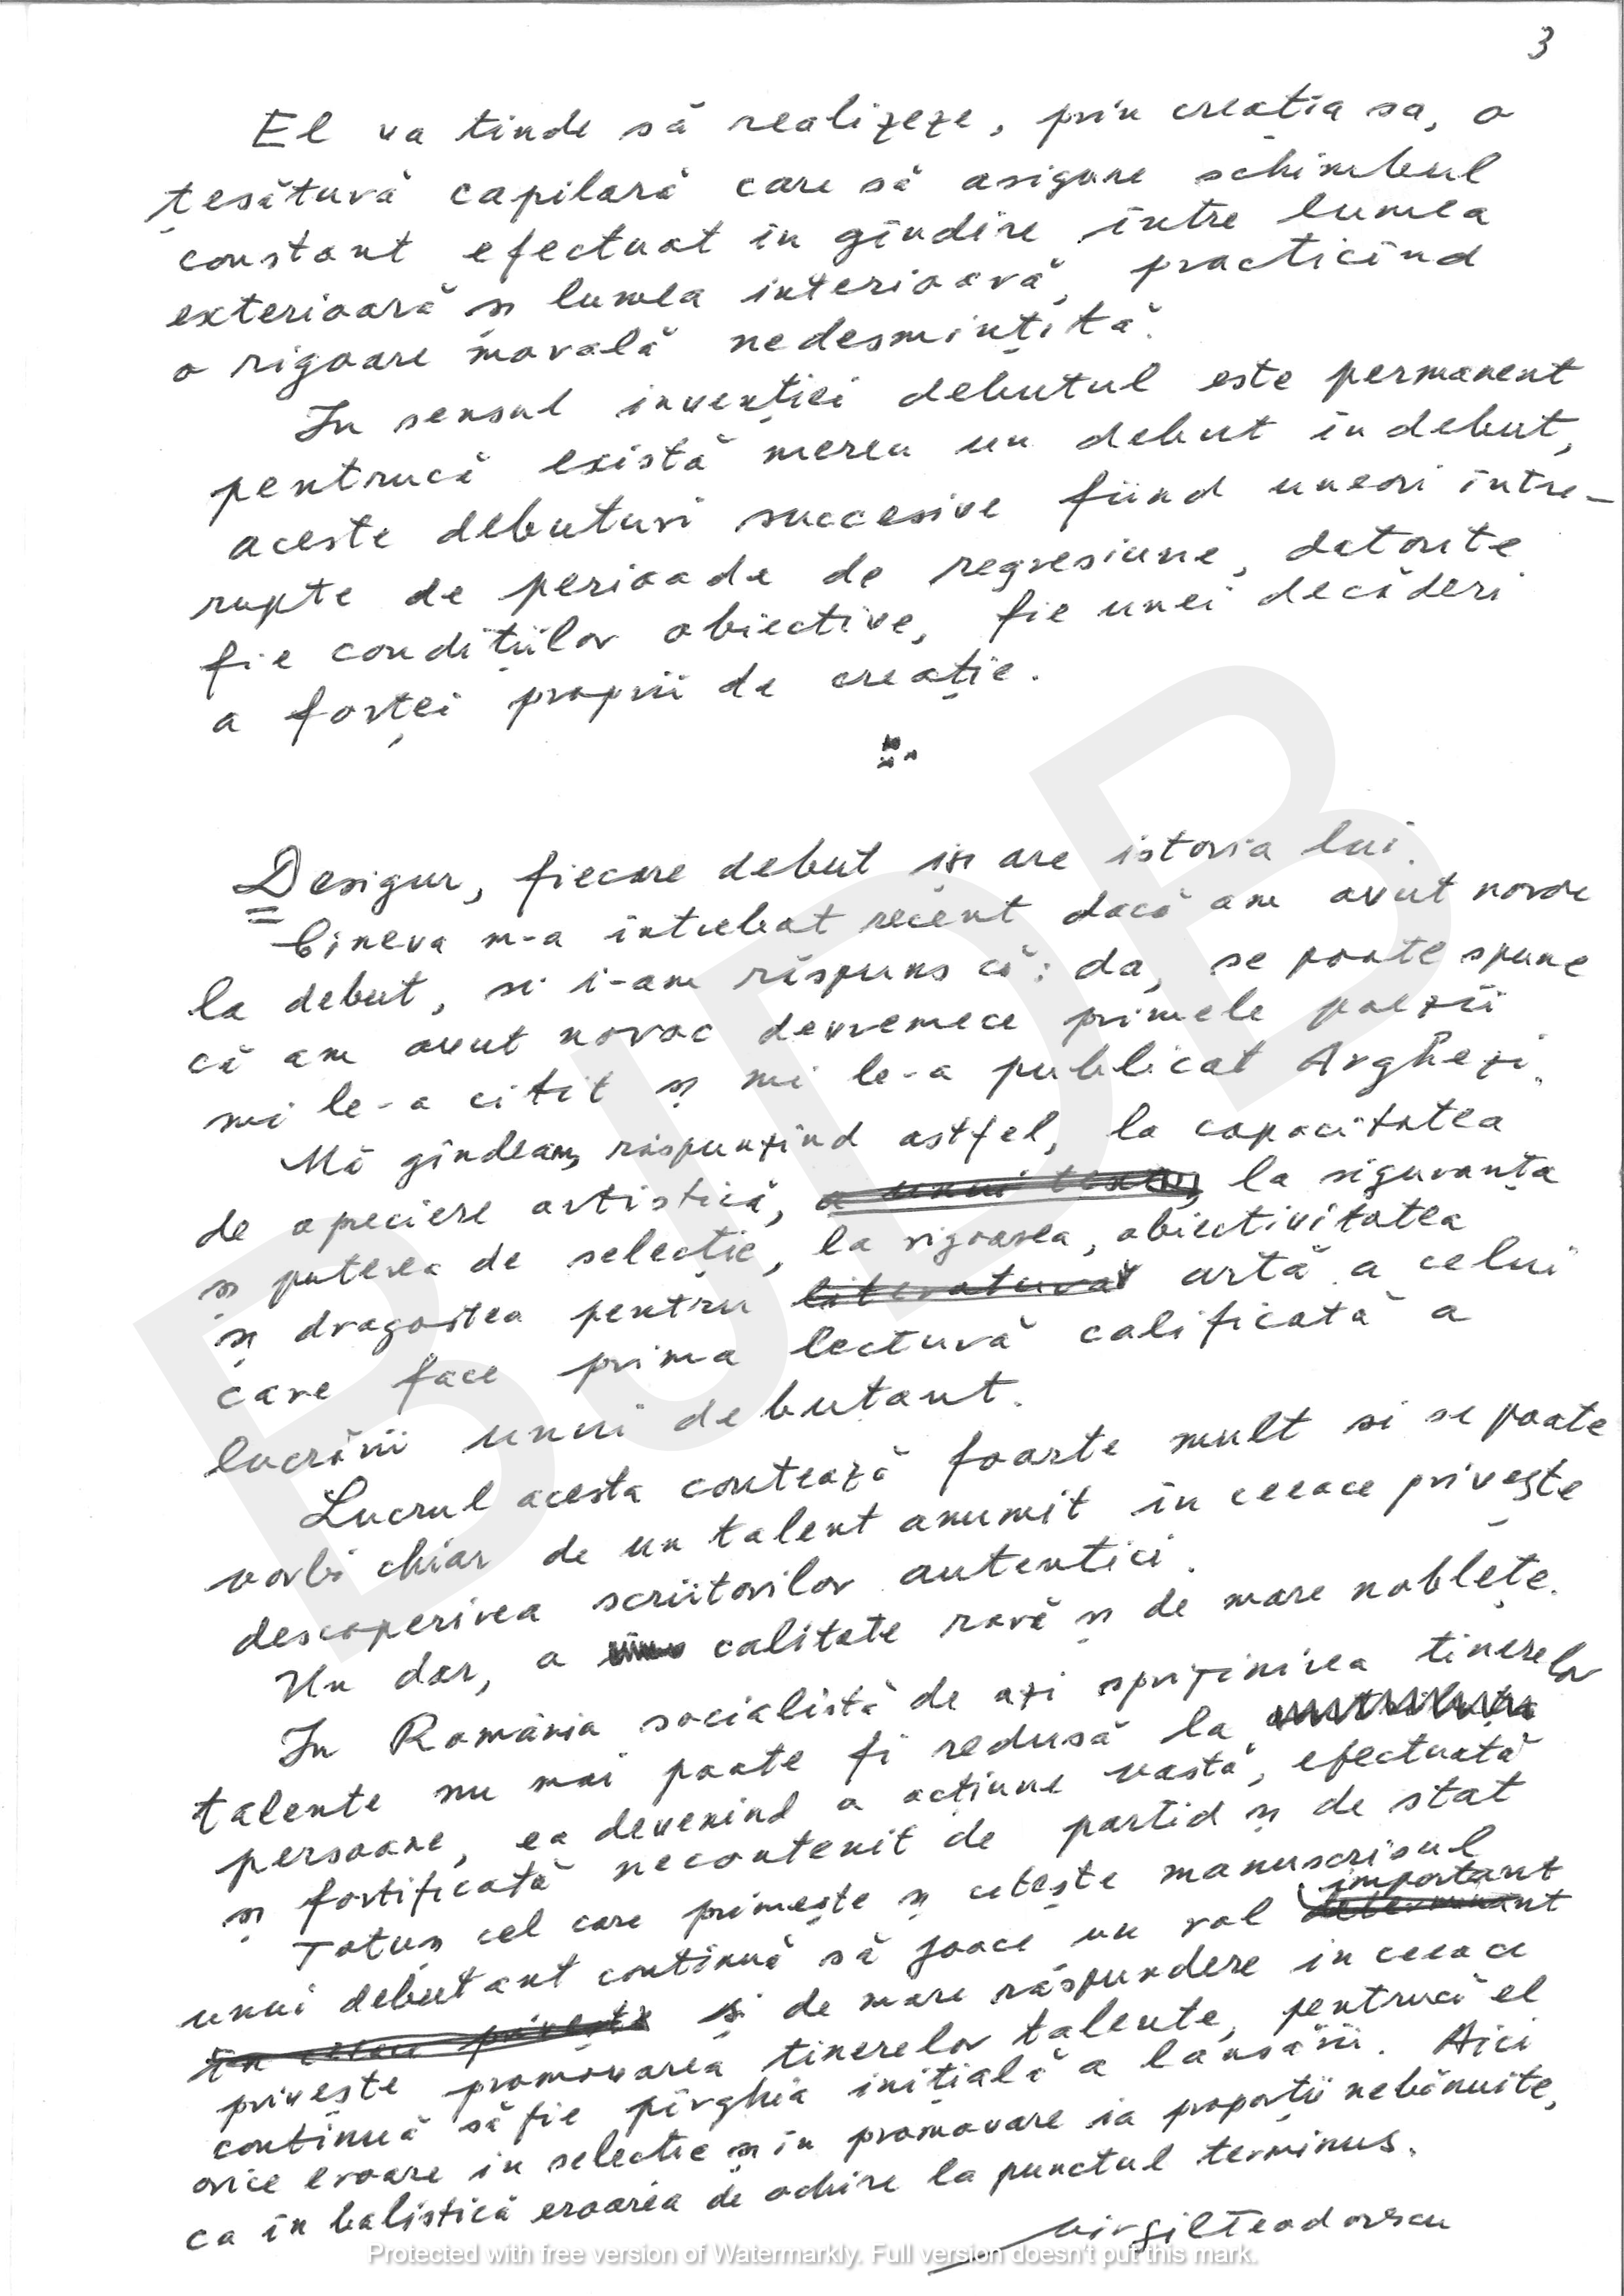 3
El va tinde să realizeze, prin creația sa, o
țesătură capilară care să asigure schimbul
constant efectuat în gîndire între lumea
exterioară și lumea interioară, practicînd
o rigoare morală nedesmințită.
In sensul invenției debutul este permanent
pentrucă există mereu un debut în debut,
aceste debuturi succesive fiind uneori intre-
rupte de perioade de regresiune, datorite
fie condițiilor obiective, fie unei decăderi
a forței proprii de creație.
Desigur, fiecare debut își are istoria lui.
Cineva m-a intrebat recent dacă am avut noroc
la debut, si i-am răspuns că: da, se poate spune
că am avut noroc devremece primele poezii
mi le-a citit și mi le-a publicat Arghezi.
Mă gîndeam, răspunzînd astfel, la capacitatea
de apreciere artistică, a unui text, la siguranța
și puterea de selecție, la rigoarea, obiectivitatea
și dragostea pentru literatură artă a celui
care face prima lectură calificată a
lucrării unui debutant.
Lucrul acesta contează foarte mult si se poate
vorbi chiar de un talent anumit în ceeace privește
descoperirea scriitorilor autentici.
Un dar, o calitate rară și de mare noblețe.
In România socialistă de azi sprijinirea tinerelor
talente nu mai poate fi redusă la
persoane, ea devenind o acțiune vastă, efectuată
și fortificată necontenit de partid și de stat
Totuși cel care primește și citește manuscrisul
important
unui debutant continuă să joace un rol determinant
în ceeace privește și de mare răspundere in ceeace
privește promovarea tinerelor talente, pentrucă el
continuă să fie pîrghia inițială a lansării. Aici
orice eroare in selecție și în promovare ia proporții nebănuite,
ca în balistică eroarea de ochire la punctul terminus.
Virgil Teodorescu
BJDB
Protected with free version of Watermarkly. Full version doesn't put this mark.